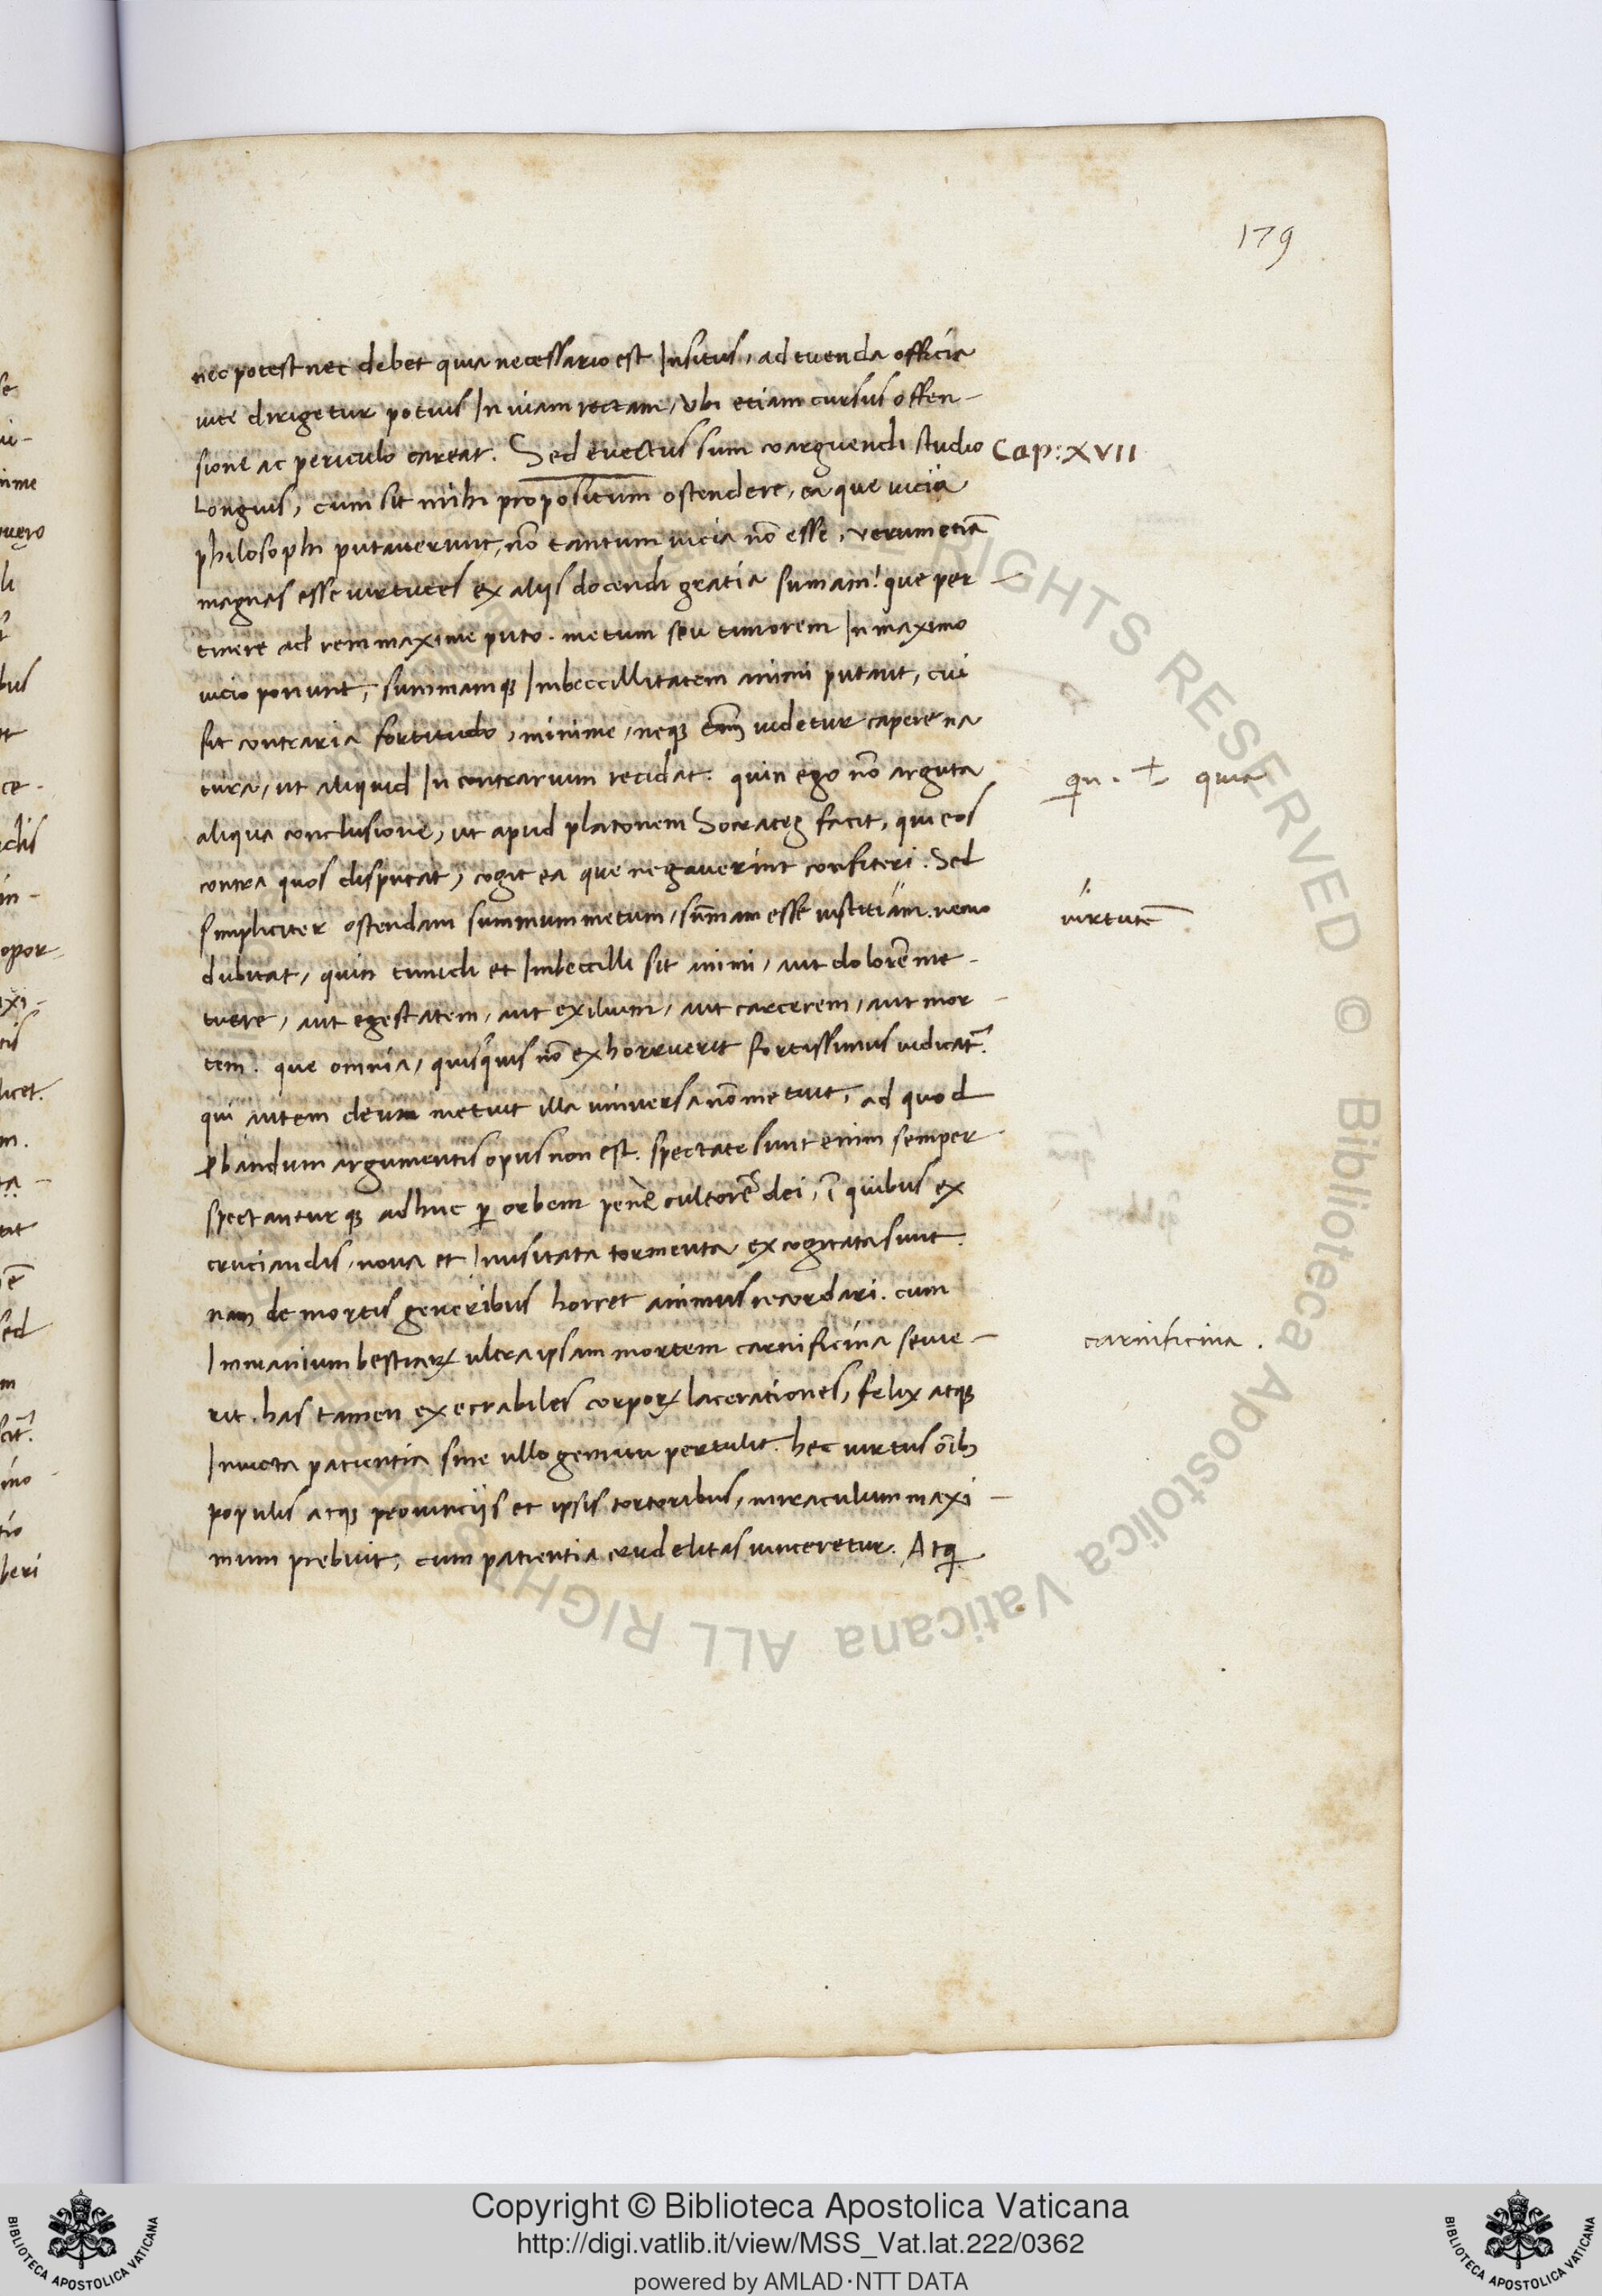 179
nec potest nec debet quia necessario est Insitus, ad tuenda officia
uite dirigetur potius In uiam rectam, Vbi etiam cursus offen-
sione ac periculo careat. Sed euectus sum coarguendi studio Cap: XVII
Longius, cum sit mihi propositum ostendere, ea que uicia
philosophi putauerunt, nō tantum uicia nō esse, verum etiā
magnas esse uirtutes ex alijs docendi gratia sumam! que per-
tinere ad rem maxime puto. metum seu timorem In maximo
uicio ponunt, summamqȝ Imbeccillitatem animi putant, cui
sit contraria fortitudo, minime, neqȝ em̄ uidetur capere na
tura, ut aliquid In contrarium recidat. quin ego nō arguta
qn. + quia
aliqua conclusione, ut apud platonem Socrates facit, qui eos
contra quos disputat, cogit ea que negauerint confiteri. Sed
simpliciter ostendam summum metum, sūmam esse iustitiam. nemo
uirtutē
dubitat, quin timidi et Imbeccilli sit animi, aut dolorē me-
tuere, aut egestatem, aut exilium, aut carcerem, aut mor-
tem. que omnia, quisquis nō exhorruerit fortissimus iudicat̄.
qui autem deum metuit illa uniuersa nō metuit, ad quod
ꝓbandum argumentis opus non est. spectate sunt enim semper
spectanturqȝ adhuc ꝑ orbem pene cultorē dei, ī quibus ex
cruciandis, noua et Inusitata tormenta excogitata sunt.
nam de mortis generibus horret animus recordari. cum
Immanium bestiaꝝ ultra ipsam mortem carnificina seuie-
carnificina.
rit. has tamen execrabiles corpoꝝ lacerationes, felix atqȝ
Inuicta patientia sine ullo gemitu pertulit. hec uirtus oībȝ
populis atqȝ prouincijs et ipsis tortoribus, miraculum maxi-
mum prebuit, cum patientia crudelitas uinceretur. Atq̄
Copyright © Biblioteca Apostolica Vaticana
http://digi.vatlib.it/view/MSS_Vat.lat.222/0362
powered by AMLAD·NTT DATA